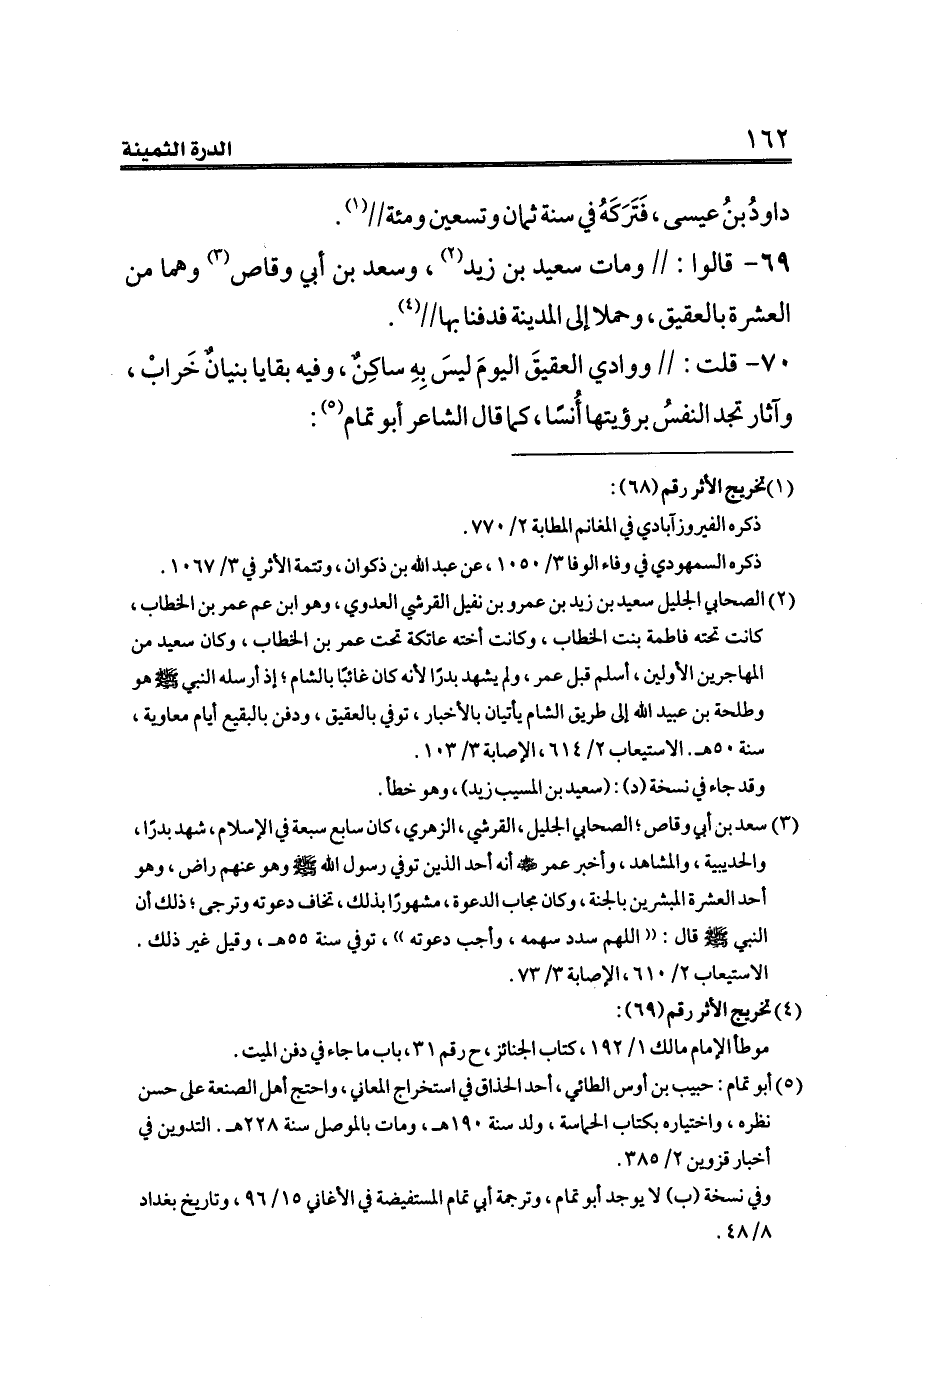 ١٦٢ الدرة الثمينة
داودُ بنُ عيسى، فَتَرَكَهُ في سنة ثمان وتسعين ومئة//(١).
٦٩- قالوا: // ومات سعيد بن زيد(٢)، وسعد بن أبي وقاص(٣) وهما من
العشرة بالعقيق، وحملا إلى المدينة فدفنا بها//(٤).
٧٠- قلت: // ووادي العقيقَ اليومَ ليسَ بِهِ ساكِنٌ، وفيه بقايا بنيانٌ خَرابْ،
وآثار تجد النفسُ برؤيتها أُنسًا، كما قال الشاعر أبو تمام(٥):
(١) تخريج الأثر رقم (٦٨):
ذكره الفيروزآبادي في المغانم المطابة ٢/ ٧٧٠.
ذكره السمهودي في وفاء الوفا ٣/ ١٠٥٠، عن عبد الله بن ذكوان، وتتمة الأثر في ٣/ ١٠٦٧.
(٢) الصحابي الجليل سعيد بن زيد بن عمرو بن نفيل القرشي العدوي، وهو ابن عم عمر بن الخطاب،
كانت تحته فاطمة بنت الخطاب، وكانت أخته عاتكة تحت عمر بن الخطاب، وكان سعيد من
المهاجرين الأولين، أسلم قبل عمر، ولم يشهد بدرًا لأنه كان غائبًا بالشام؛ إذ أرسله النبي ﷺ هو
وطلحة بن عبيد الله إلى طريق الشام يأتيان بالأخبار، توفي بالعقيق، ودفن بالبقيع أيام معاوية،
سنة ٥٠هـ. الاستيعاب ٢/ ٦١٤، الإصابة ٣/ ١٠٣.
وقد جاء في نسخة (د): (سعيد بن المسيب زيد)، وهو خطأ.
(٣) سعد بن أبي وقاص؛ الصحابي الجليل، القرشي، الزهري، كان سابع سبعة في الإسلام، شهد بدرًا،
والحديبية، والمشاهد، وأخبر عمر ﷺ أنه أحد الذين توفي رسول الله ﷺ وهو عنهم راض، وهو
أحد العشرة المبشرين بالجنة، وكان مجاب الدعوة، مشهورًا بذلك، تخاف دعوته وترجى؛ ذلك أن
النبي ﷺ قال: «اللهم سدد سهمه، وأجب دعوته»، توفي سنة ٥٥هـ، وقيل غير ذلك.
الاستيعاب ٢/ ٦١٠، الإصابة ٣/ ٧٣.
(٤) تخريج الأثر رقم (٦٩):
موطأ الإمام مالك ١/ ١٩٢، كتاب الجنائز، ح رقم ٣١، باب ما جاء في دفن الميت.
(٥) أبو تمام: حبيب بن أوس الطائي، أحد الحذاق في استخراج المعاني، واحتج أهل الصنعة على حسن
نظره، واختياره بكتاب الحماسة، ولد سنة ١٩٠هـ، ومات بالموصل سنة ٢٢٨هـ. التدوين في
أخبار قزوين ٢/ ٣٨٥.
وفي نسخة (ب) لا يوجد أبو تمام، وترجمة أبي تمام المستفيضة في الأغاني ١٥/ ٩٦، وتاريخ بغداد
٨/ ٤٨.